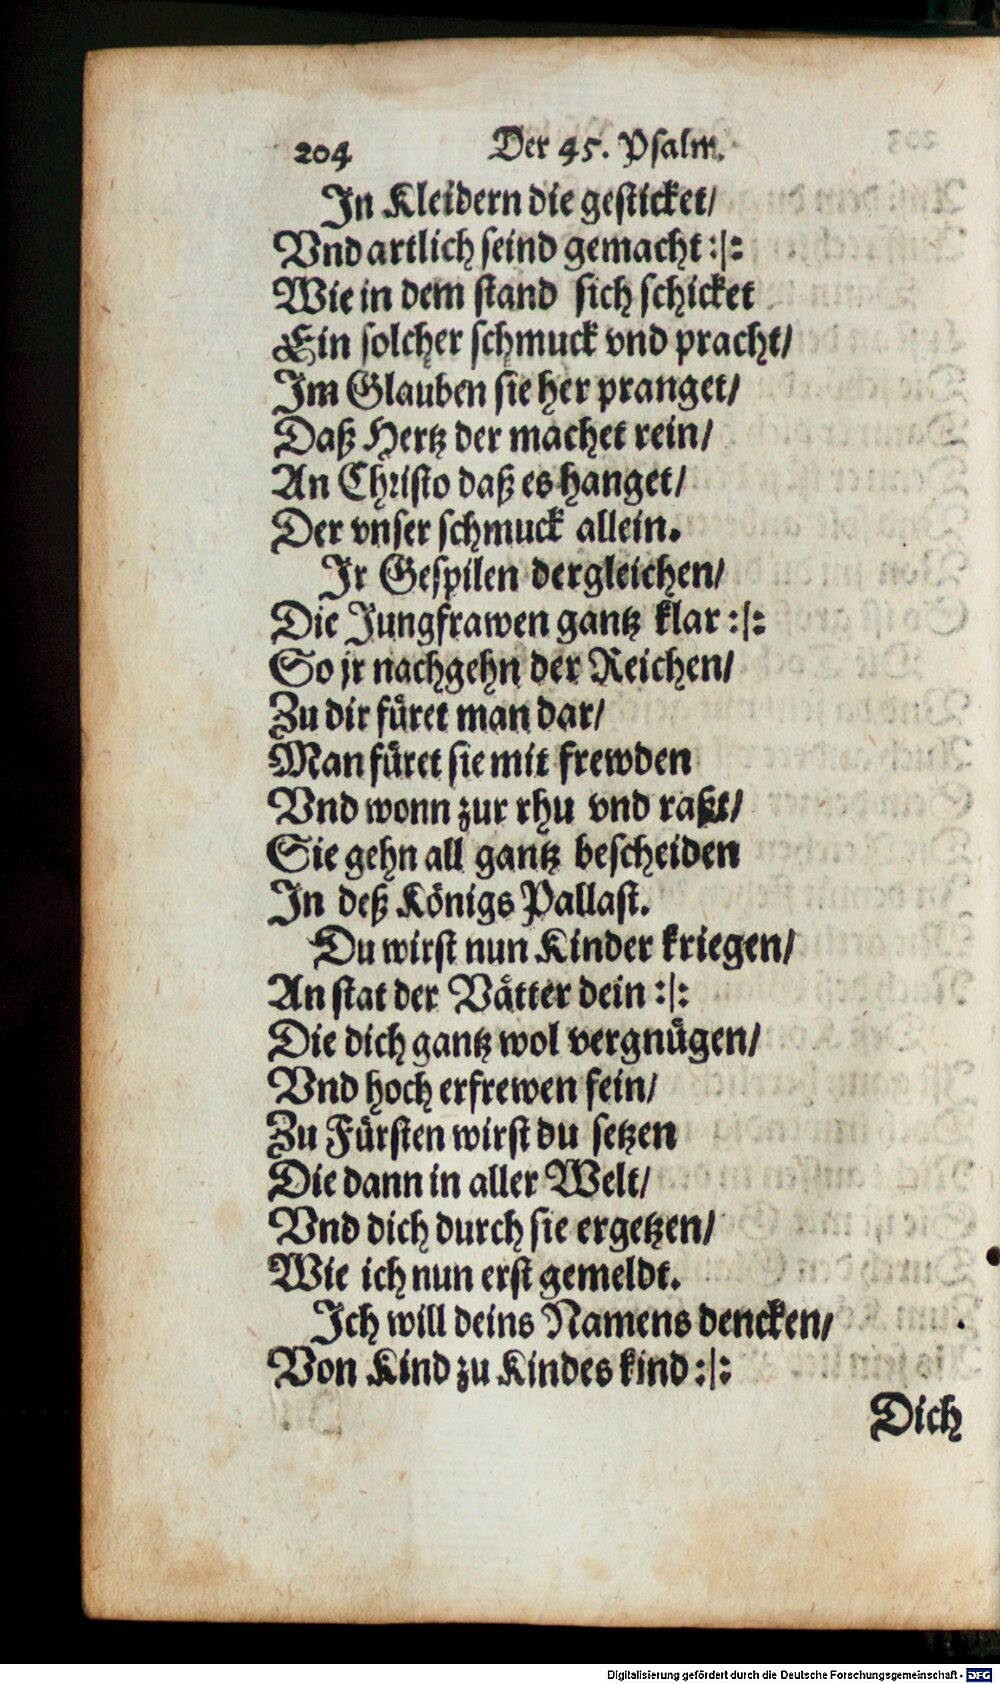 204 Der 45. Psalm.
In Kleidern die gesticket/
Vnd artlich seind gemacht :|:
Wie in dem stand sich schicket
Ein solcher schmuck vnd pracht/
Im Glauben sie her pranget/
Daß Hertz der machet rein/
An Christo daß es hanget/
Der vnser schmuck allein.
Jr Gespilen dergleichen/
Die Jungfrawen gantz klar :|:
So jr nachgehn der Reichen/
Zu dir füret man dar/
Man füret sie mit frewden
Vnd wonn zur rhu vnd raßt/
Sie gehn all gantz bescheiden
In deß Königs Pallast.
Du wirst nun Kinder kriegen/
An stat der Vätter dein :|:
Die dich gantz wol vergnügen/
Vnd hoch erfrewen fein/
Zu Fürsten wirst du setzen
Die dann in aller Welt/
Vnd dich durch sie ergetzen/
Wie ich nun erst gemeldt.
Ich will deins Namens dencken/
Von Kind zu Kindes kind :|:
Dich
Digitalisierung gefördert durch die Deutsche Forschungsgemeinschaft - DFG